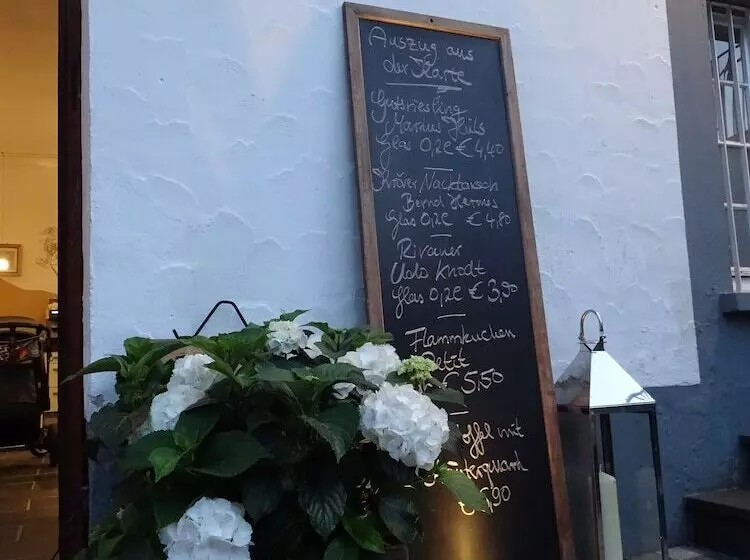 Auszug aus
der Karte
Gutsriesling
Markus Hüls
Glas 0,2l € 4,40
Kröver Nacktarsch
Bernd Hermes
Glas 0,2l € 4,80
Rivaner
Udo Knodt
Glas 0,2l € 3,90
Flammkuchen
Petit
€ 5,50
mit